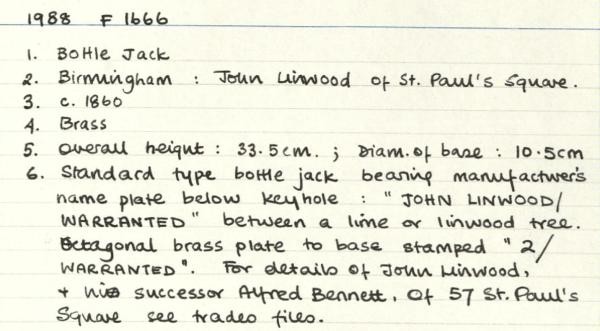 1988 F 1666
1. Bottle Jack
2. Birmingham : John Linwood of St. Paul's Square.
3. c. 1860
4. Brass
5. Overall height : 33.5cm. ; Diam. of base : 10.5cm
6. Standard type bottle jack bearing manufacturer's
name plate below keyhole : "JOHN LINWOOD/
WARRANTED" between a lime or linwood tree.
Octagonal brass plate to base stamped "2/
WARRANTED". For details of John Linwood,
+ his successor Alfred Bennett, of 57 St. Paul's
Square see trades files.